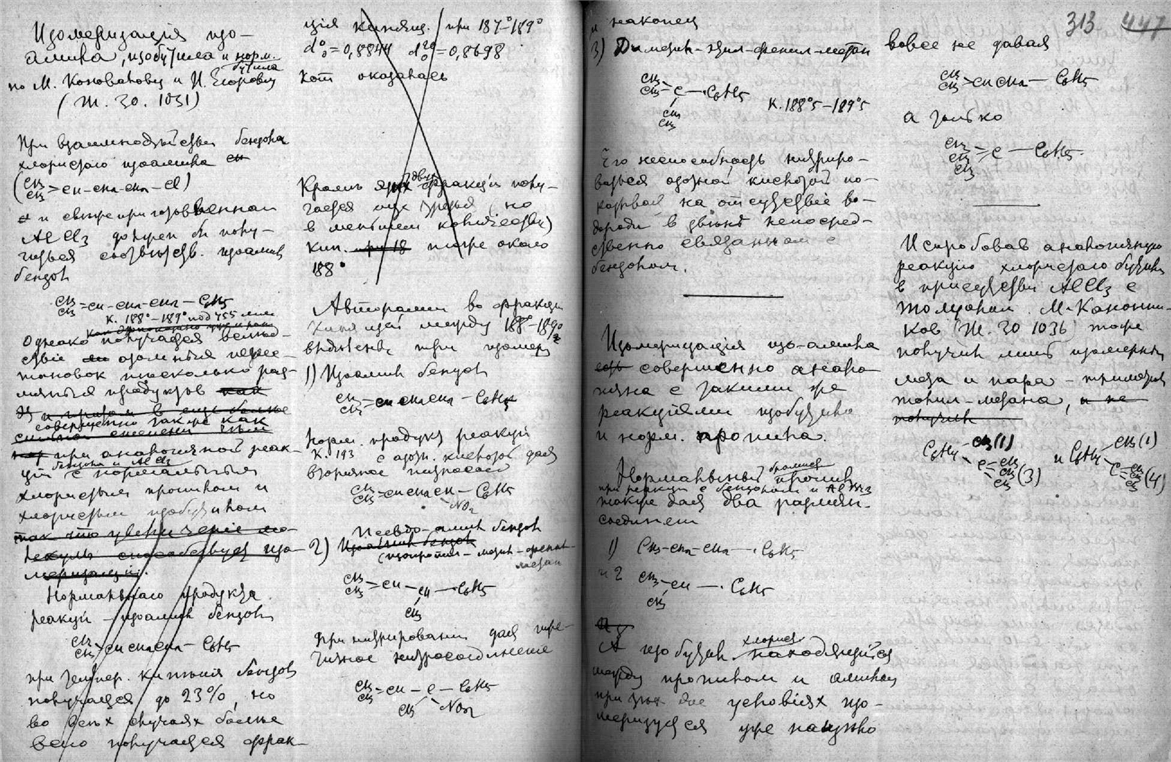 Изомеризація изо-
амила, изобутила и норм.
бутила
по М. Коновалову и И. Егорову
(Ж. 30. 1031)
При взаимнодѣйствіи бензола
хлористаго изоамила
(CH3 CH3 > CH-CH2-CH2-Cl)
и свѣже приготовленнаго
AlCl3 должен бы полу-
чаться соотвѣтств. изоамил
бензол
CH3 CH3 > CH-CH2-CH2-C6H5
К. 188°-189° под 755 мм
Однако получается вслѣд-
ствіе атомных перес-
тановок нѣсколько раз-
личных продуктов как
и притом в еще болѣе
совершенно также как
сильной степени чѣм
при аналогичной реак-
бензола и AlCl3
ціи с нормальным
хлористым пропилом и
хлористым изобутилом
так что увеличеніе мо-
лекулы способствует изо-
меризаціи.
Нормальнаго продукта
реакціи – изоамил бензол
CH3 CH3 > CH CH2 CH2 - C6H5
при темпер. кипѣнія бензола
получается до 23%, но
во всѣх случаях болѣе
всего получается фрак-
ція кипящ. при 187°-189°
d0/0=0,8844 d20/0=0,8698
кот оказалась
двух
Кромѣ этих фракцій полу-
чается еще третья (но
в меньшем количествѣ)
кип. тоже около
188°
Авторами во фракціи
кипящей между 188-189°
выдѣлены три изомера
1) Изоамил бензол
CH3 CH3 > CH CH2 CH2 - C6H5
Норм. продукт реакціи
К. 193 с азотн. кислотой дает
вторичное нитросоед
CH3 CH3 > CH CH2 CH - C6H5
NO2
Псевдо-амил бензол
2) Изоамил бензол
(изопропил-метил-фенил
метан
CH3 CH3 > CH - CH - C6H5
CH3
При нитрированіи дает трe-
тичное нитросоединеніе
CH3 CH3 > CH - C - C6H5
CH3 NO2
и наконец
3) Диметил-этил-фенил-метан
CH3 CH2 > C - C6H5
CH3 CH3
К. 188°5-189°5
Что неспособность нитриро-
ваться азотной кислотой по-
казывает на отсутствіе во-
дорода в цѣпи непосред-
ственно связанном с
бензолом.
Изомеризація изо-амила
совершенно анало-
гична с такими же
реакціями изобутила
и норм. пропила
Нормальный пропил
бромист
при реакціи с бензолом и AlBr3
также дает два различн.
соединен
1) CH3-CH2-CH2-C6H5
и 2 CH3 CH3 > CH - C6H5
А изобутил находящійся
хлорист
между пропилом и амилом
при тѣх же условіях изо-
меризуется уже нацѣло
313 447
вовсе не давая
CH3 CH3 > CH CH2 - C6H5
а только
CH3 CH3 CH3 > C - C6H5
Испробовав аналогичную
реакцію хлористаго бутила
в присутствіи AlCl3 с
толуолом М. Коновалов
(Ж. 30 1036) тоже
получил лишь изомерные
мета и пара - триметил
толил-метана, и не
получил
C6H4 CH3(1) C CH3 CH3 CH3 (3) и C6H4 CH3(1) C CH3 CH3 CH3 (4)